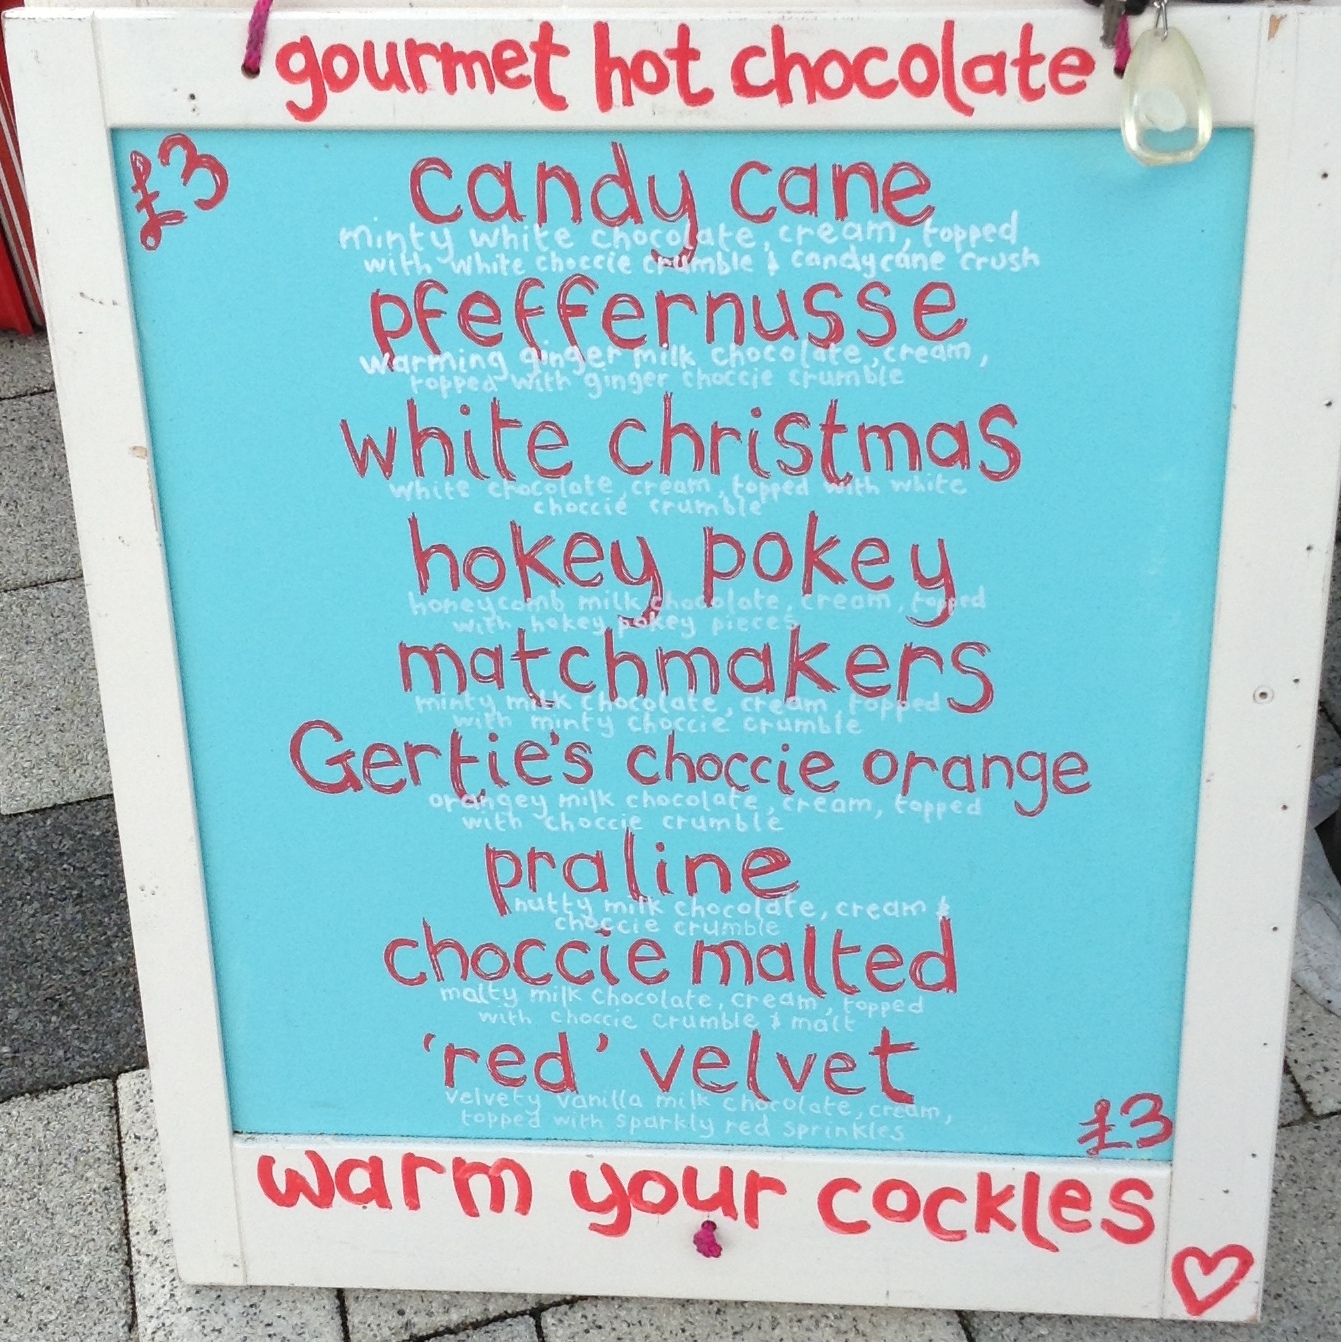 gourmet hot chocolate
£3
candy cane
minty white chocolate, cream, topped
with white choccie crumble & candycane crush
pfeffernusse
warming ginger milk chocolate, cream,
topped with ginger choccie crumble
white christmas
white chocolate, cream, topped with white
choccie crumble
hokey pokey
honeycomb milk chocolate, cream, topped
with hokey pokey pieces
matchmakers
minty milk chocolate, cream, topped
with minty choccie crumble
Gertie's choccie orange
orangey milk chocolate, cream, topped
with choccie crumble
praline
nutty milk chocolate, cream &
choccie crumble
choccie malted
malty milk chocolate, cream, topped
with choccie crumble & malt
'red' velvet
velvety vanilla milk chocolate, cream,
topped with sparkly red sprinkles
£3
warm your cockles